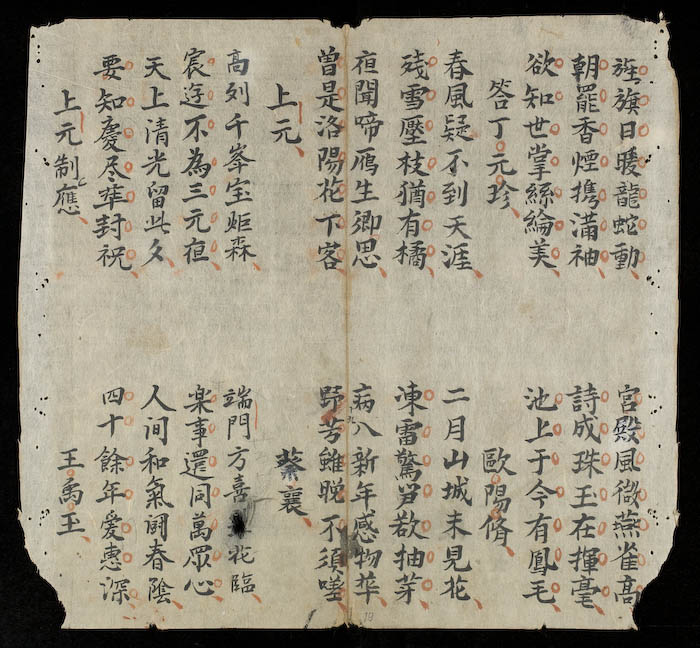 旌旗日暖龍蛇動
宮殿風微燕雀高
朝罷香煙携滿袖
詩成珠玉在揮毫
欲知世掌絲綸美
池上于今有鳳毛
答丁元珍
歐陽脩
春風疑不到天涯
二月山城未見花
残雪壓枝猶有橘
凍雷驚笋欲抽芽
夜聞啼鴈生卿思
病入新年感物華
曽是洛陽花下客
野芳雖晚不須嗟
上元
蔡襄
高列千峯宝炬森
端門方喜花臨
宸逰不為三元夜
楽事還同萬眾心
天上清光留此夕
人间和氣閣春陰
要知慶尽華封祝
四十餘年爱惠深
上元制應
王禹玉